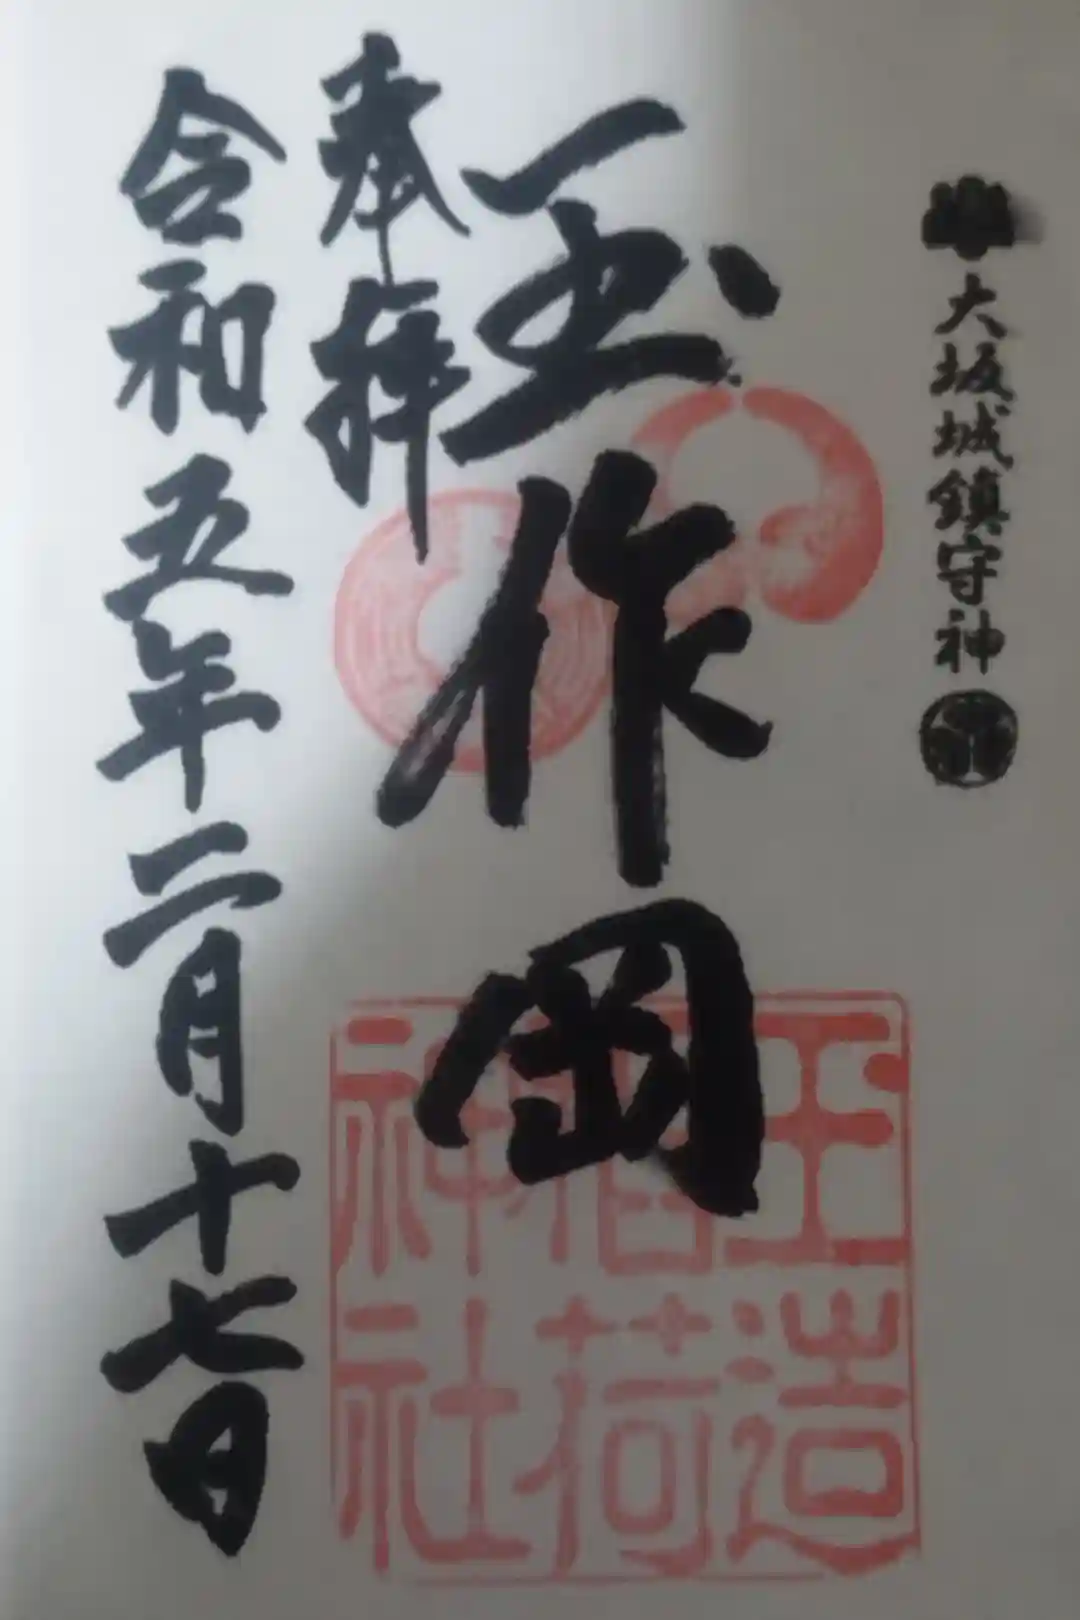 大坂城鎮守神
玉作岡
玉造
稲荷
神社
奉拝
令和五年二月十七日